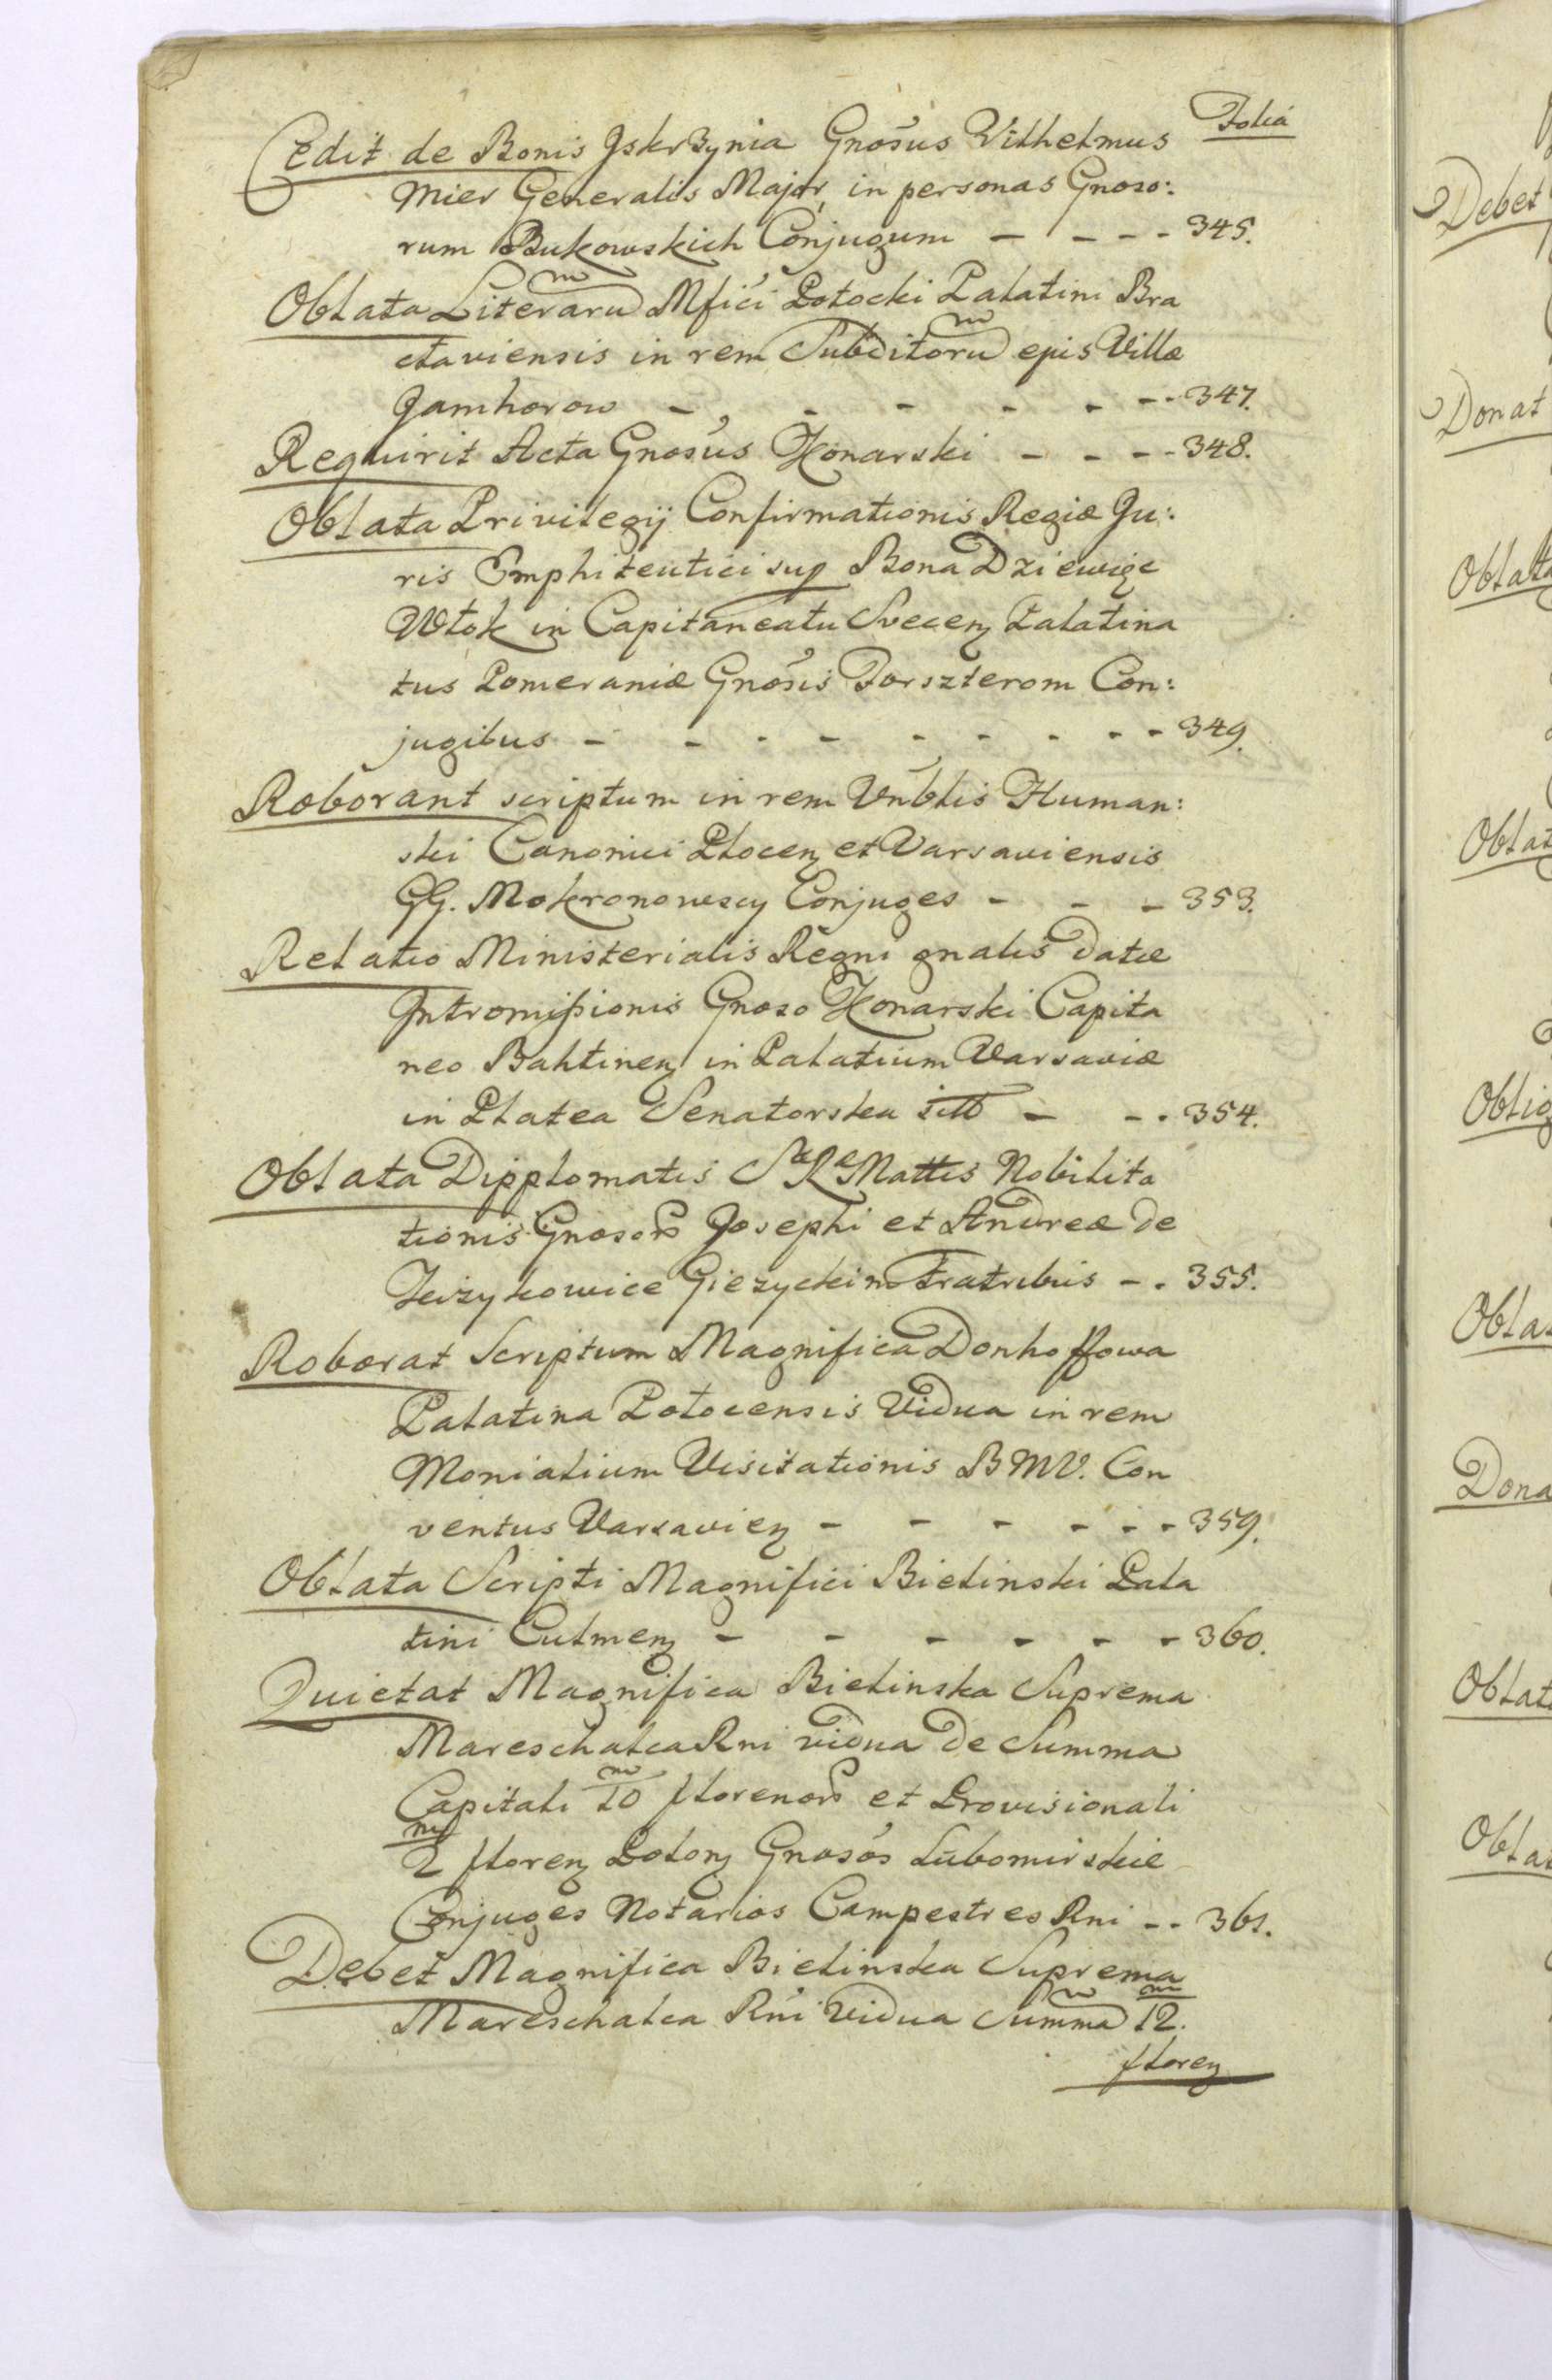 Folia
Cedit de Bonis Jskrzynia Gnosus Vilhelmus
Mier Generalis Major, in personas Gnoso:
rum Bukowskich Conjugum - - - - 345.
Oblata Literaru Mfici Potocki Palatini Bra
claviensis in rem Subditoru ejus Villæ
Jamhorow - - - - - - - 347.
Requirit Acta Gnosus Konarski - - - - 348.
Oblata Privilegij Confirmationis Regiæ Ju:
ris Emphiteutici sup Bona Dziewięc
Włok in Capitaneatu Svecen Palatina
tus Pomeraniæ Gnosis Forszterom Con:
jugibus - - - - - - - - - 349.
Roborant scriptum in rem Vnblis Human:
ski Canonici Plocen et Varsaviensis
GG. Mokronowscy Conjuges - - - 353.
Relatio Ministerialis Regni gnalis Datæ
Intromissionis Gnoso Konarski Capita
neo Bahtinen in Palatium Varsaviæ
in Platea Senatorska sitt - - - 354.
Oblata Dipplomatis S R Mattis Nobilita
tionis Gnosor Josephi et Andreæ de
Gieżyckim Fratribus - - 355.
Roborat Scriptum Magnifica Donhoffowa
Palatina Polocensis Vidua in rem
Monialium Visitationis BMV. Con
ventus Varsavien - - - - - - 359.
Oblata Scripti Magnifici Bielinski Pala
tini Culmen - - - - - - 360.
Quietat Magnifica Bielinska Suprema
Mareschalca Rni vidua de Summa
Capitali 10 m florenor et Provisionali
2 m floren Polon Gnosos Lubomirskie
Conjuges Notarios Campestres Rni - - 361.
Debet Magnifica Bielinska Suprema
Mareschalca Rni Vidua Summa 12 m.
floren
Debet
Donat
Oblata
Oblat
Oblig
Obla
Dona
Oblat
Obla